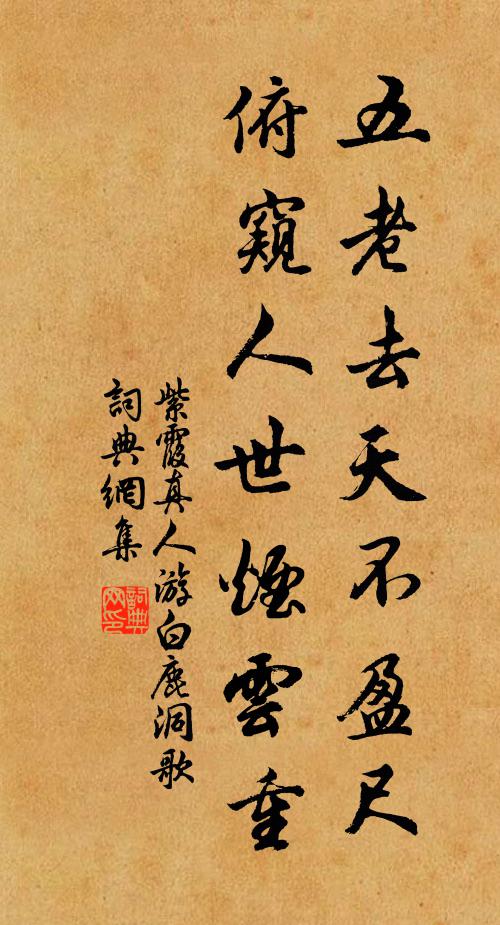 五老去天不盈尺
俯窺人世煙雲重
紫霞真人游白鹿洞歌
詞典網集
詞典
网印